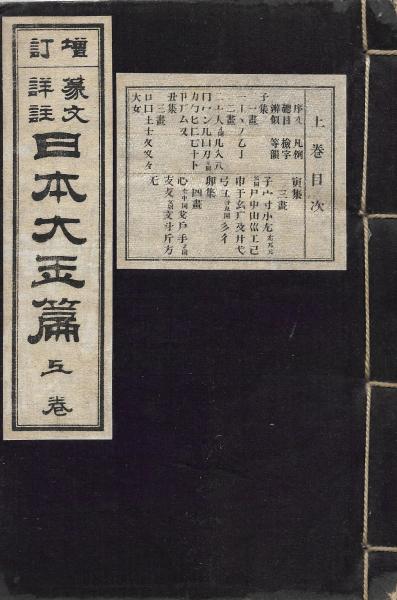 增訂
篆文詳註
日本大玉篇
上卷
上卷目次
序文 凡例
總目 檢字
辨似 等韻
子集
一畫
一丨丶丿乙亅
二畫
二亠人儿入八
冂冖冫几凵刀
力勹匕匚匸十卜
卩厂厶又
丑集
三畫
口囗土士夂夊夕
大女
寅集
三畫
子宀寸小尢
尸屮山巛工己
巾干幺广廴廾弋
弓彐彡彳
卯集
四畫
心戈戶手
支攴文斗斤方
无